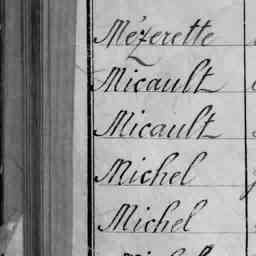 Mézerette
Micault
Micault
Michel
Michel